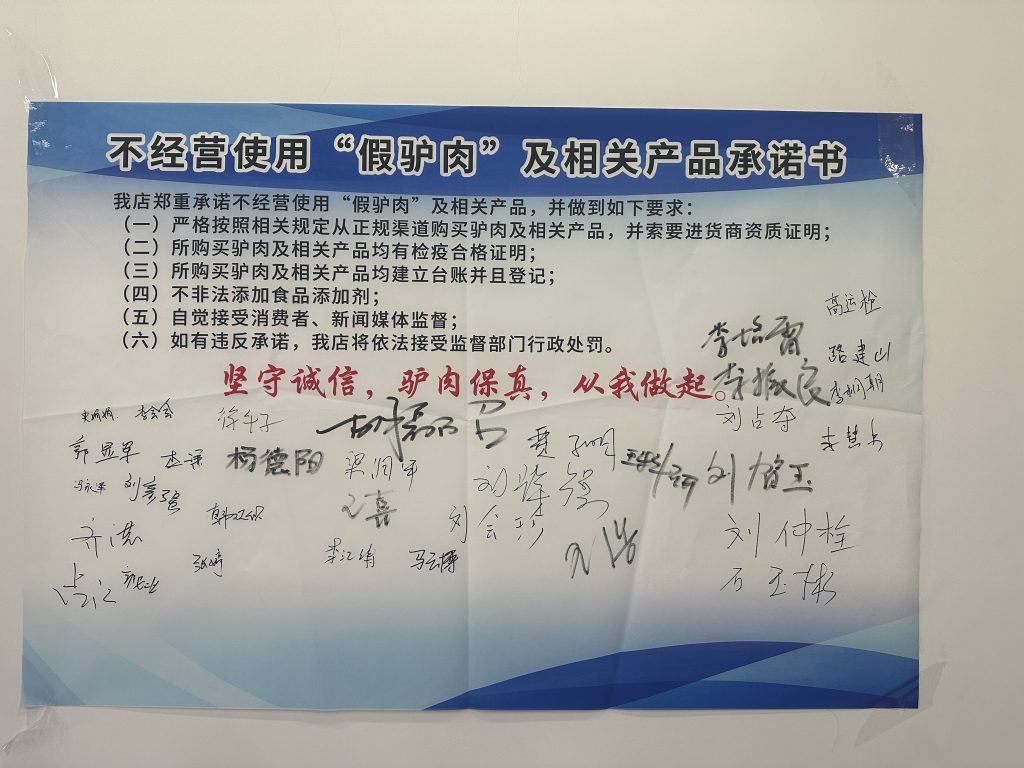 不经营使用“假驴肉”及相关产品承诺书
我店郑重承诺不经营使用“假驴肉”及相关产品，并做到如下要求：
（一）严格按照相关规定从正规渠道购买驴肉及相关产品，并索要进货商资质证明；
（二）所购买驴肉及相关产品均有检疫合格证明；
（三）所购买驴肉及相关产品均建立台账并且登记；
（四）不非法添加食品添加剂；
（五）自觉接受消费者、新闻媒体监督；
（六）如有违反承诺，我店将依法接受监督部门行政处罚。
坚守诚信，驴肉保真，从我做起。
高运栓
李培雷
路建山
李振良
刘占夺
李会会
郭显军
杨德阳
梁润军
刘会珍
李江倩
马云博
刘仲栓
石玉彬